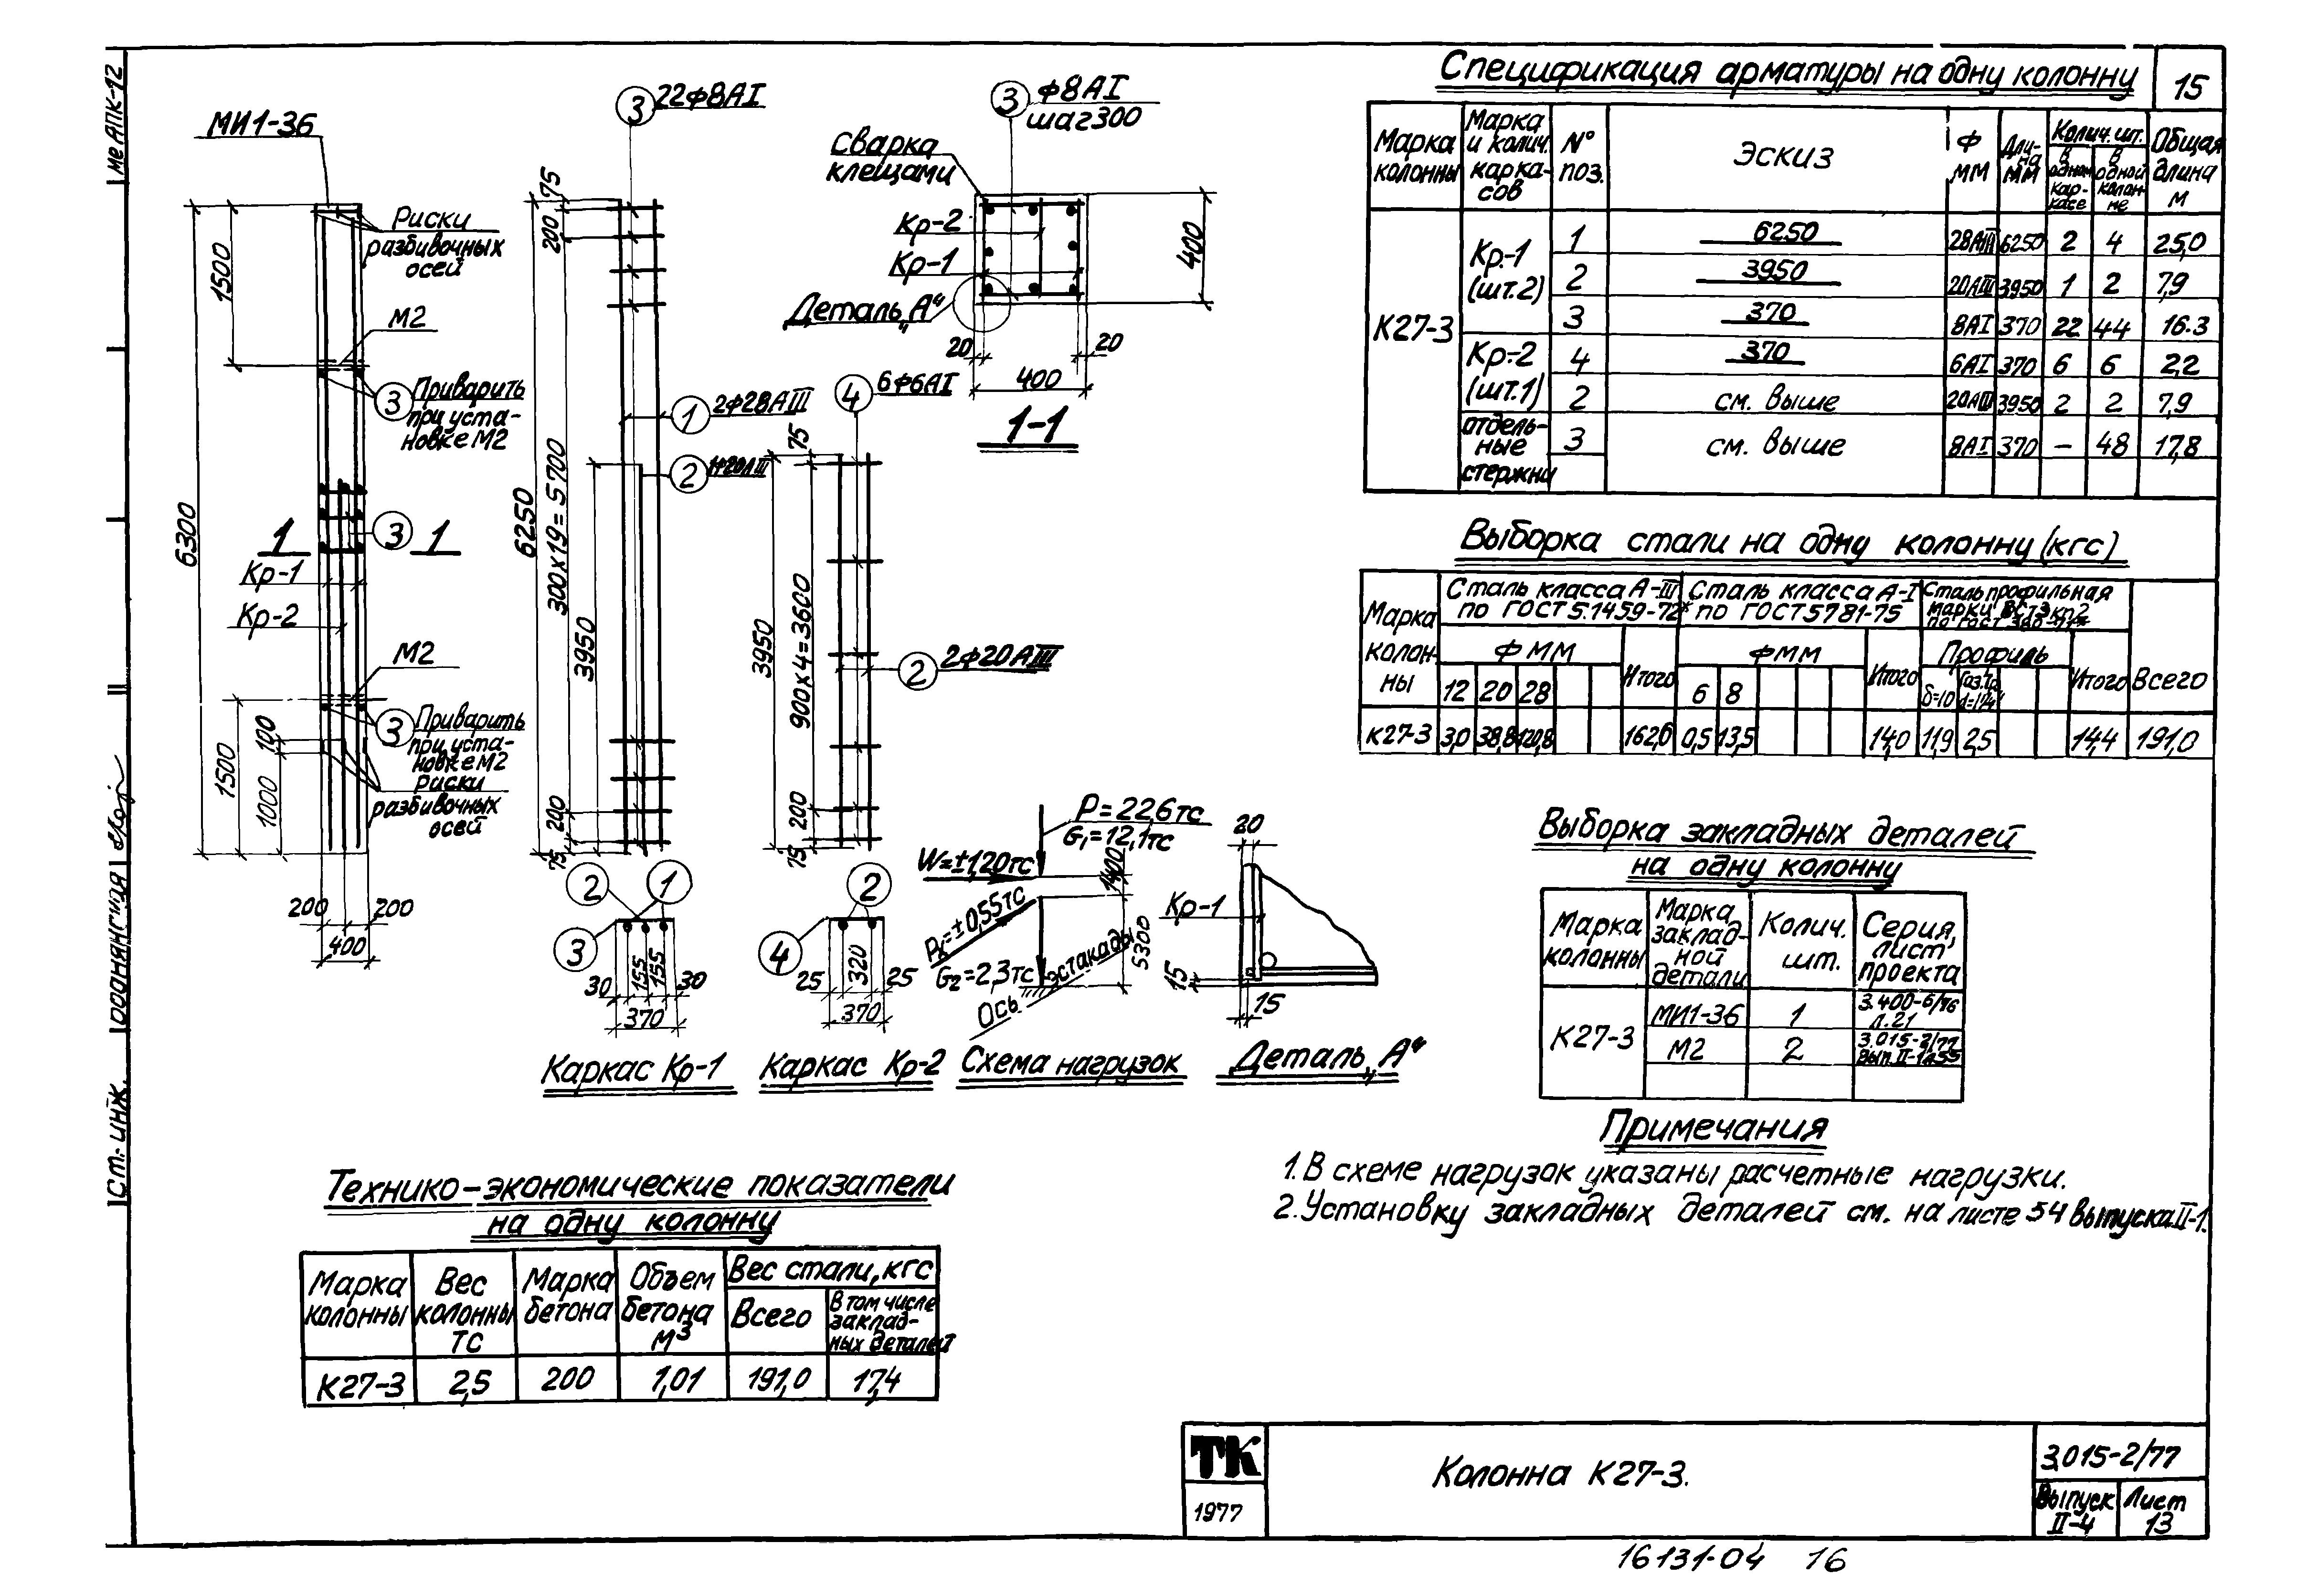 15
МИ1-36
Риски
разбивочных
осей
1500
6300
М2
3
Приварить
при уста-
новке М2
1
3
1
Кр-1
Кр-2
М2
3
Приварить
при уста-
новке М2
Риски
разбивочных
осей
1500
100
1000
200
200
400
3
22ф8АI
75
200
6250
300х19=5700
3950
200
75
1
2ф28АIII
2
1ф20АIII
2
1
3
30
155
155
30
370
Каркас Кр-1
4
6ф6АI
75
3950
900х4=3600
200
75
2
2ф20АIII
2
4
25
320
25
370
Каркас Кр-2
3
ф8АI
шаг300
Сварка
клещами
Кр-2
Кр-1
Деталь „А“
400
20
20
400
1-1
Р=22,6тс
G1=12,1тс
W=±1,20тс
1400
Рх=±0,55тс
5300
G2=2,3тс
Ось эстакады
Схема нагрузок
20
Кр-1
15
15
Деталь „А“
Спецификация арматуры на одну колонну
Марка колонны
Марка и колич. карка-сов
N° поз.
Эскиз
Ф мм
Дли-на мм
Колич. шт.
В одном кар-касе
В одной колон-не
Общая длина м
К27-3
Кр.-1 (шт.2)
1 6250 28АIII 6250 2 4 25,0
2 3950 20АIII 3950 1 2 7,9
3 370 8АI 370 22 44 16.3
Кр-2 (шт.1)
4 370 6АI 370 6 6 2,2
2 см. выше 20АIII 3950 2 2 7,9
отдель-ные стержни
3 см. выше 8АI 370 – 48 17,8
Выборка стали на одну колонну (кгс)
Марка колон-ны
Сталь класса А-III по ГОСТ 5.1459-72*
Сталь класса А-I по ГОСТ 5781-75
Сталь профильная марки ВСт3кп2
ф мм
Итого
фмм
Итого
Профиль
Итого
Всего
12 20 28
6 8
δ=10
К27-3 3,0 38,8 120,8 162,6 0,5 13,5 14,0 11,9 2,5 14,4 191,0
Выборка закладных деталей
на одну колонну
Марка колонны
Марка заклад-ной детали
Колич. шт.
Серия, лист проекта
К27-3
МИ1-36 1 3.400-6/76 л.21
М2 2 3.015-2/77 Вып.II-1л.55
Примечания
1. В схеме нагрузок указаны расчетные нагрузки.
2. Установку закладных деталей см. на листе 54 выпуска II-1.
Технико-экономические показатели
на одну колонну
Марка колонны
Вес колонны тс
Марка бетона
Объем бетона м3
Вес стали, кгс
Всего
В том числе заклад-ных деталей
К27-3 2,5 200 1,01 191,0 17,4
ТК
1977
Колонна К27-3.
3.015-2/77
Выпуск II-4
Лист 13
16131-04 16
Ст. инж.